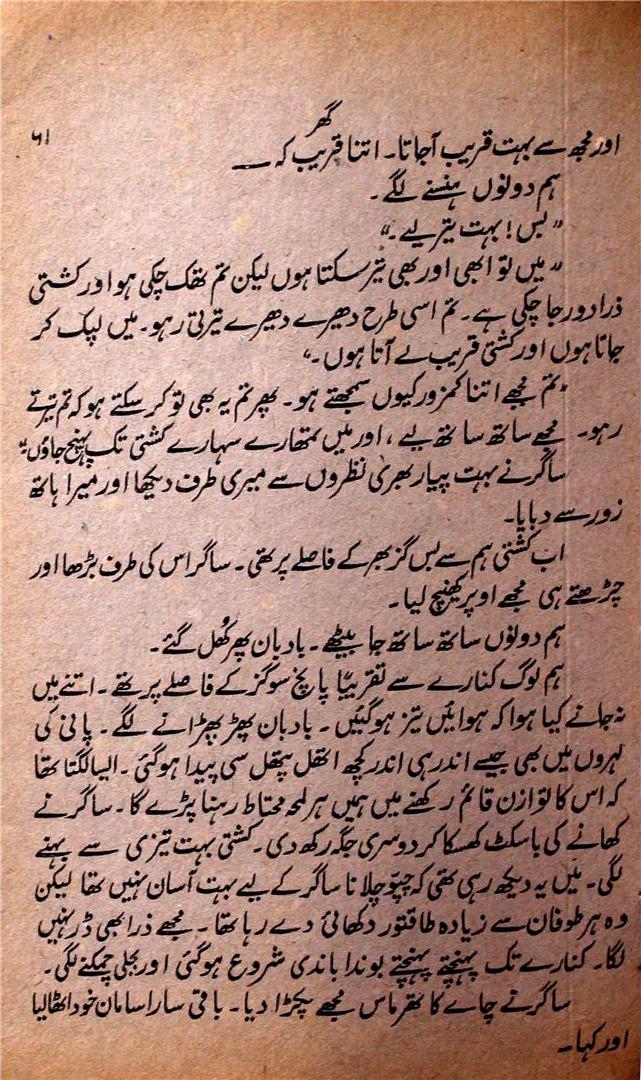 گھر
۶۱
اور مجھ سے بہت قریب آ جاتا۔ اتنا قریب کہ ——
ہم دونوں ہنسنے لگے۔
"بس! بہت تیر لیے۔"
"میں تو ابھی اور بھی تیر سکتا ہوں لیکن تم تھک چکی ہو اور کشتی
ذرا دور جا چکی ہے۔ تم اسی طرح دھیرے دھیرے تیرتی رہو۔ میں لپک کر
جاتا ہوں اور کشتی قریب لے آتا ہوں۔"
"تم مجھے اتنا کمزور کیوں سمجھتے ہو۔ پھر تم یہ بھی تو کر سکتے ہو کہ تم تیرتے
رہو۔ مجھے ساتھ ساتھ لیے، اور میں تمھارے سہارے کشتی تک پہنچ جاؤں"
ساگر نے بہت پیار بھری نظروں سے میری طرف دیکھا اور میرا ہاتھ
زور سے دبایا۔
اب کشتی ہم سے بس گز بھر کے فاصلے پر تھی۔ ساگر اس کی طرف بڑھا اور
چڑھتے ہی مجھے اوپر کھینچ لیا۔
ہم دونوں ساتھ ساتھ جا بیٹھے۔ بادبان پھر کُھل گئے۔
ہم لوگ کنارے سے تقریباً پانچ سو گز کے فاصلے پر تھے۔ اتنے میں
نہ جانے کیا ہوا کہ ہوائیں تیز ہو گئیں۔ بادبان پھڑ پھڑانے لگے۔ پانی کی
لہروں میں بھی جیسے اندر ہی اندر کچھ اتھل پتھل سی پیدا ہو گئی۔ ایسا لگتا تھا
کہ اس کا توازن قائم رکھنے میں ہمیں ہر لمحہ محتاط رہنا پڑے گا۔ ساگر نے
کھانے کی باسکٹ کھسکا کر دوسری جگہ رکھ دی۔ کشتی بہت تیزی سے بہنے
لگی۔ میں یہ دیکھ رہی تھی کہ چپّو چلانا ساگر کے لیے بہت آسان نہیں تھا لیکن
وہ ہر طوفان سے زیادہ طاقتور دکھائی دے رہا تھا۔ مجھے ذرا بھی ڈر نہیں
لگا۔ کنارے تک پہنچتے پہنچتے بوندا باندی شروع ہو گئی اور بجلی چمکنے لگی۔
ساگر نے چاے کا تھرماس مجھے پکڑا دیا۔ باقی سارا سامان خود اٹھا لیا
اور کہا۔